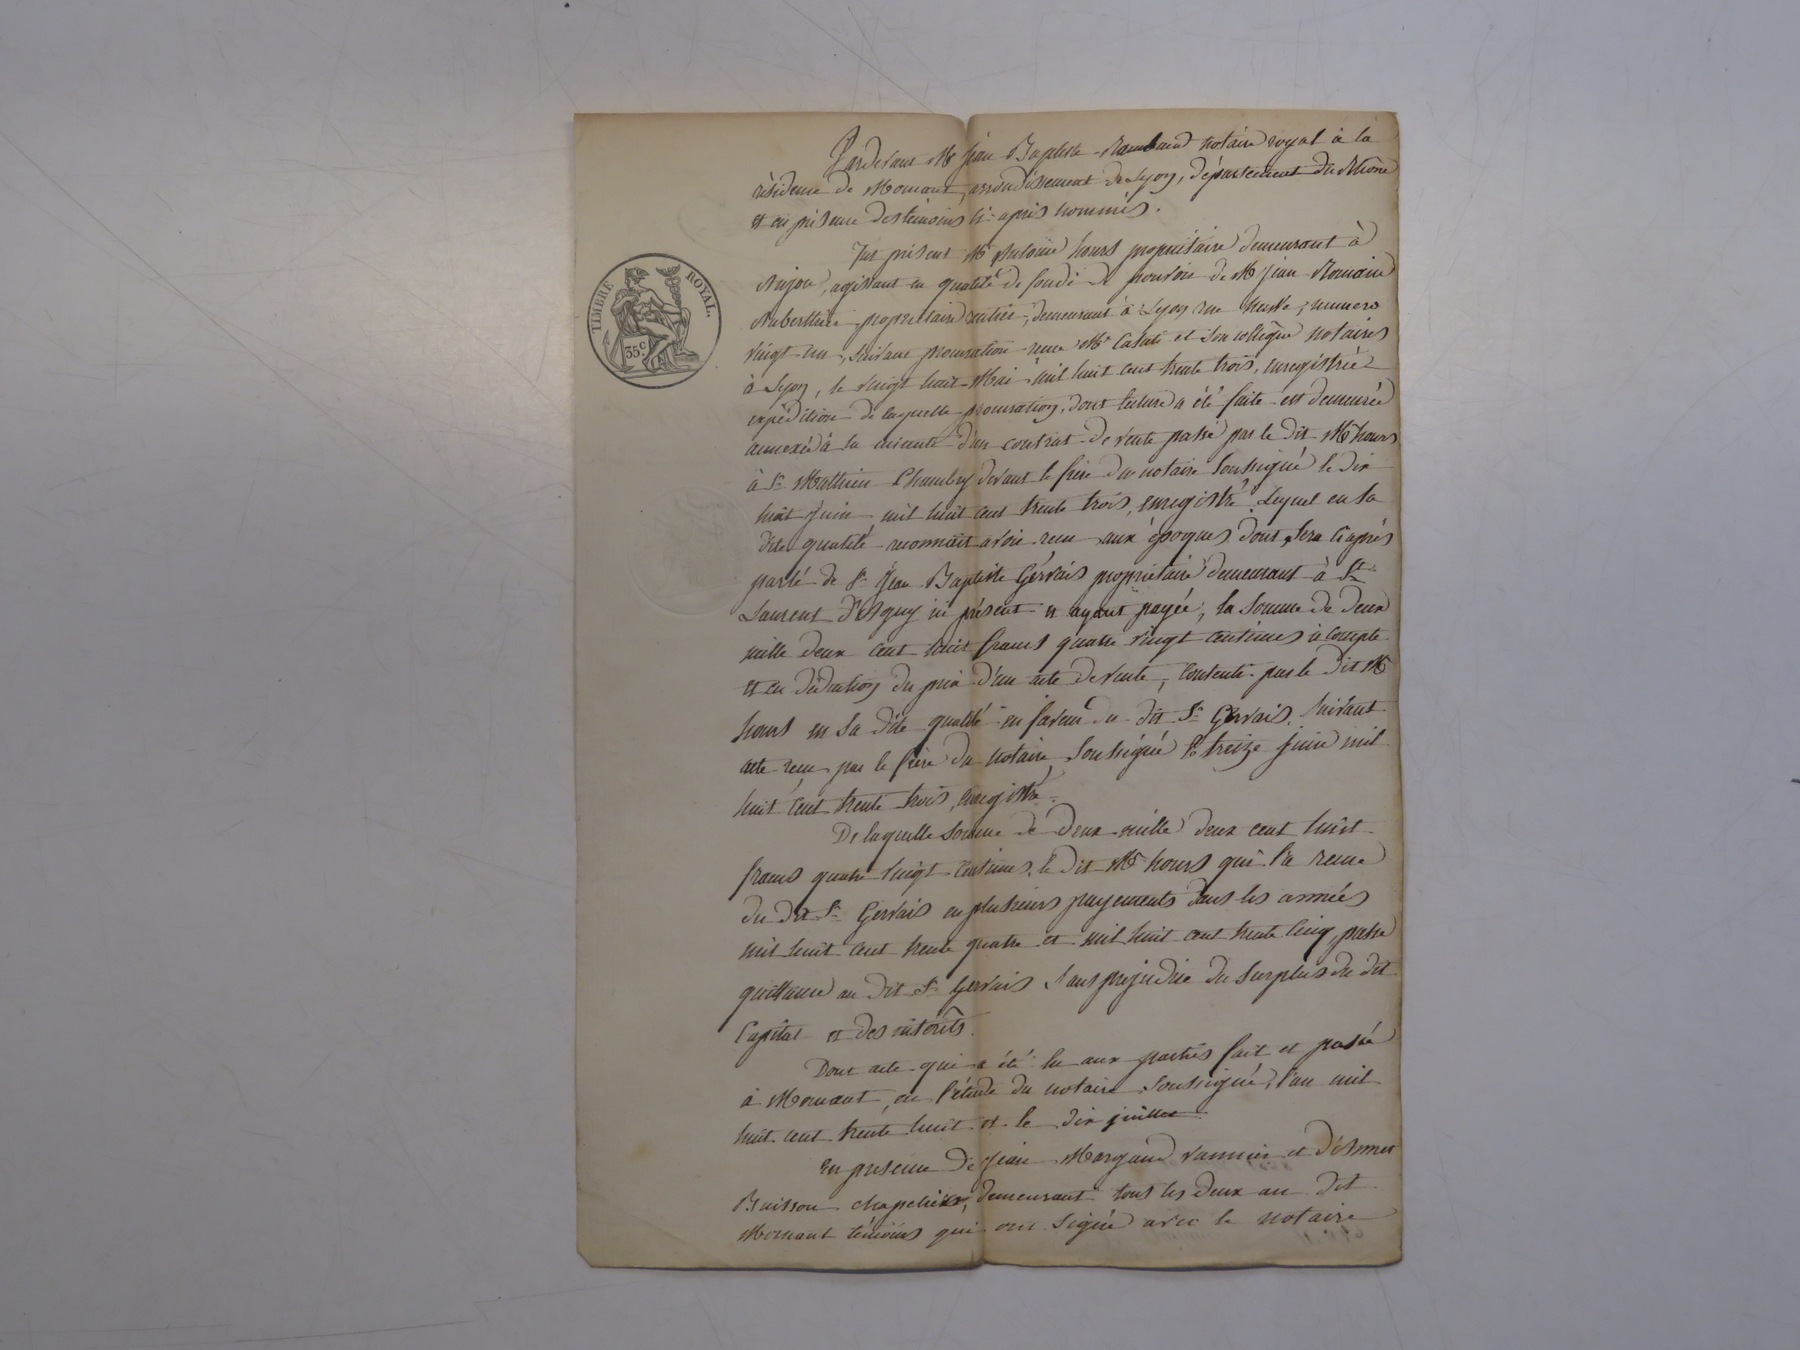 Pardevant Me Jean Baptiste Rambaud notaire royal à la
résidence de Mornant, arrondissement de Lyon, département du Rhône
et en présence des témoins ci-après nommés.
Fut présent Mr Antoine hours propriétaire demeurant à
Anjou, agissant en qualité de fondé de pouvoir de Mr Jean Romain
propriétaire rentier, demeurant à Lyon rue numero
vingt un, suivant procuration recue Me Casati et son collègue notaires
à Lyon, le vingt huit Mai mil huit cent trente trois, enregistrée
expédition de laquelle procuration, dont lecture a été faite est demeurée
annexée à la minute d'un contrat de vente passé par le dit Mr hours
à Sr Mathieu Chambry devant le frère du notaire soussigné le dix
huit Juin mil huit cent trente trois, enregistré. Lequel en sa
dite qualité reconnait avoir recu aux époques dont sera ciaprès
parlé de Sr Jean Baptiste Gervais propriétaire demeurant à St
Laurent D'agny ici présent et ayant payée, la somme de deux
mille deux cent huit francs quatre vingt centimes à compte
et en déduction du prix d'un acte de vente, consenti par le dit Mr
hours en sa dite qualité en faveur du dit Sr Gervais, suivant
acte recu par le frère du notaire soussigné le treize Juin mil
huit cent trente trois, enregistré.
De laquelle somme de deux mille deux cent huit
francs quatre vingt centimes, le dit Mr hours qui l'a recue
du dit Sr Gervais en plusieurs payements dans les années
mil huit cent trente quatre et mil huit cent trente cinq, passe
quittance au dit Sr Gervais sans préjudice du surplus du dit
Capital et des intérêts.
Dont acte qui a été lu aux parties fait et passé
à Mornant, en l'étude du notaire soussigné, l'an mil
huit cent trente huit et le dix juillet
En présence de Jean vannier et d'
Buisson chapelier, demeurant tous les deux au dit
Mornant témoins qui ont signé avec le notaire
TIMBRE ROYAL.
35 c